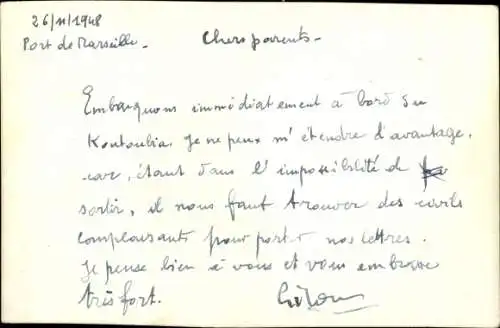 26/11/1948
Port de Marseille_
Chers parents_
Embarquons immédiatement à bord du
Koutoubia. Je ne peux m'étendre d'avantage.
car, étant dans l'impossibilité de
sortir, il nous faut trouver des civils
complaisants pour porter nos lettres.
Je pense bien à vous et vous embrasse
très fort.